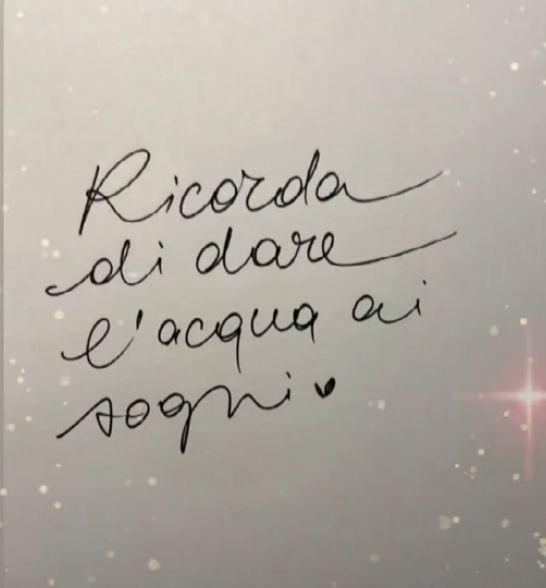 Ricorda
di dare
l'acqua ai
sogni♥